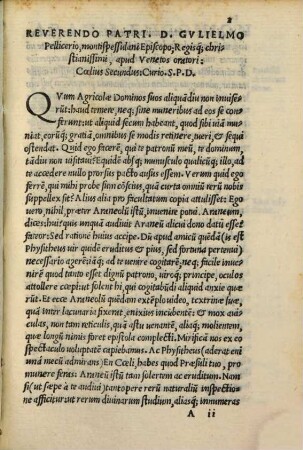 2
REVERENDO PATRI. D. GVLIELMO
Pellicerio, montispessulani Episcopo, Regisq; chri-
stianissimi, apud Venetos oratori:
Cœlius Secundus Curio. S. P. D.
QVum Agricolæ Dominos suos aliquādiu non inuise-
rūt: haud temere, neq; sine muneribus ad eos se con-
ferunt: ut aliquid secum habeant, quod sibi uiā mu-
niat, eorūq; gratiā, omnibus se modis retinere, tueri, & sequi
ostendat. Quid ego facerē, qui te patronum meū, te dominum,
tandiu nō uisitaui? Equidē absq; munusculo qualicūq; illo, ad
te accedere nullo prorsus pacto ausus essem. Verum ego uere-
bar, qui mihi probe sum cōscius, quā curta omniū rerū nobis
suppellex sit? Alius alia pro facultatum copia attulisset: Ego
uero, nihil, præter Araneolū istū, inuenire potui. Araneum,
dices: huic quis unquā diuinæ Araneū alicui dono datū esset
fatuos? Sed ratione huius accipe. Dum apud amicū quēdā (is est
Physitheus uir quidē eruditus & pius, sed fortuna pertenui)
necessario agerē: atiāq; ad te uenire cogitarē, neq; facile inuenirem
quod tanto esset dignū patrono, uirōq; principe, oculos
attollere cœpi: ut solent hi, qui cogitabūdi aliquid anxie quæ-
rūt. Et ecce Araneolū quēdam extēplo uideo, textrinæ suæ,
quā inter lacunaria fixerat, enixius incubentē: & mox auicu-
laculas, non tam reticulis, quā astu uenantē, aliaq; molientem,
quæ longū nimis foret epistola complecti. Mirificā nos ex eo
spectaculo uoluptatē capiebamus. Ac Physitheus (aderat eni
unā mecū admirans) En Cœli, habes quod Præsuli tuo, pro
munere feras: Araneū istū tam solertem ac eruditum. Nam
si (ut sæpe à te audiui) tantopere rerū naturaliū inspectio-
ne afficitur, ut rerum diuinarum studium, aliasq; innumeras
A ii